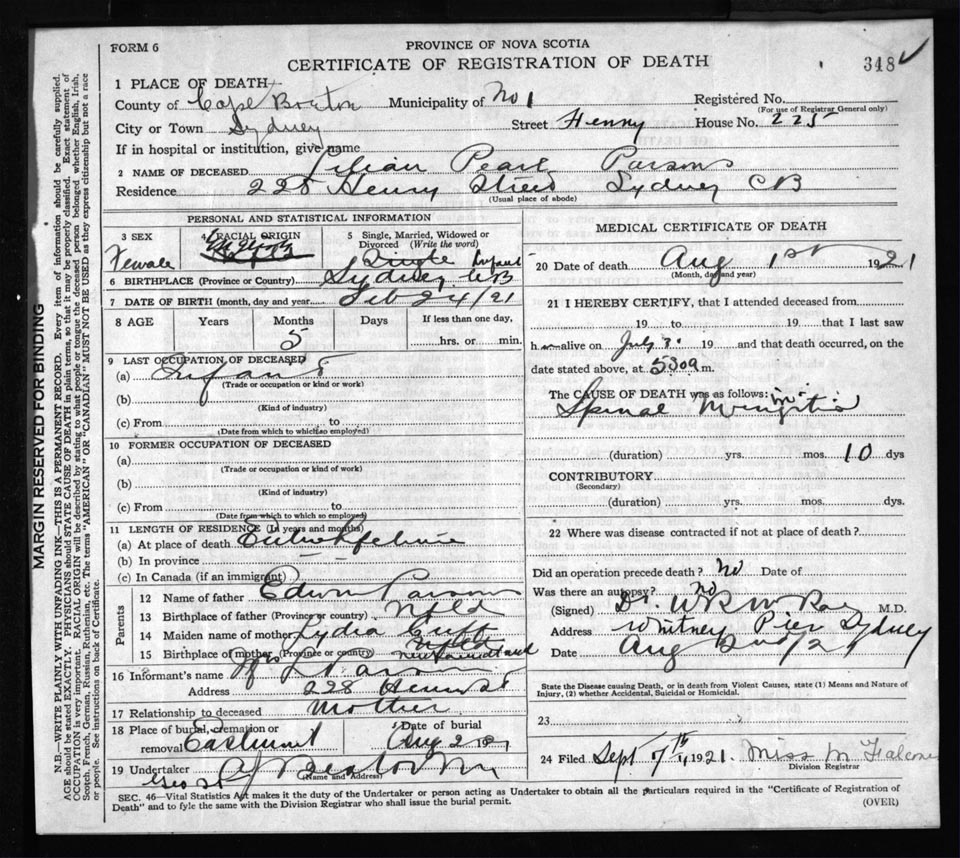 FORM 6
PROVINCE OF NOVA SCOTIA
CERTIFICATE OF REGISTRATION OF DEATH
348
1 PLACE OF DEATH
County of Cape Breton Municipality of No 1 Registered No.
(For use of Registrar General only)
City or Town Sydney Street Henry House No. 225
If in hospital or institution, give name
2 NAME OF DECEASED Lilian Pearl Parsons
Residence 228 Henry Street Sydney CB
(Usual place of abode)
PERSONAL AND STATISTICAL INFORMATION
3 SEX Female
4 RACIAL ORIGIN
5 Single, Married, Widowed or Divorced (Write the word) Single Infant
6 BIRTHPLACE (Province or Country) Sydney CB
7 DATE OF BIRTH (month, day and year) Feb 24/21
8 AGE Years Months 5 Days If less than one day, hrs. or min.
9 LAST OCCUPATION OF DECEASED
(a) Infant
(Trade or occupation or kind or work)
(b)
(Kind of industry)
(c) From to
(Date from which to which so employed)
10 FORMER OCCUPATION OF DECEASED
(a)
(Trade or occupation or kind of work)
(b)
(Kind of industry)
(c) From to
(Date from which to which so employed)
11 LENGTH OF RESIDENCE (In years and months)
(a) At place of death Entire lifetime
(b) In province
(c) In Canada (if an immigrant)
Parents
12 Name of father Edwin Parsons
13 Birthplace of father (Province or country) Nfld
14 Maiden name of mother Lydia
15 Birthplace of mother (Province or country) Newfoundland
16 Informant's name Mrs
Address 228 Henry St
17 Relationship to deceased Mother
18 Place of burial, cremation or removal Eastmount Date of burial Aug 2 1921
19 Undertaker
(Name and Address)
MEDICAL CERTIFICATE OF DEATH
20 Date of death Aug 1st 1921
(Month, day and year)
21 I HEREBY CERTIFY, that I attended deceased from
19 to 19 that I last saw
h alive on July 19 and that death occurred, on the
date stated above, at 530a m.
The CAUSE OF DEATH was as follows:
Spinal Meningitis
(duration) yrs. mos. 10 dys
CONTRIBUTORY
(Secondary)
(duration) yrs. mos. dys.
22 Where was disease contracted if not at place of death?
Did an operation precede death? No Date of
Was there an autopsy? no
(Signed) Dr. M.D.
Address Whitney Pier Sydney
Date Aug 2nd/21
State the Disease causing Death, or in death from Violent Causes, state (1) Means and Nature of Injury, (2) whether Accidental, Suicidal or Homicidal.
23
24 Filed Sept 7th 1921. Miss M
Division Registrar
SEC. 46—Vital Statistics Act makes it the duty of the Undertaker or person acting as Undertaker to obtain all the particulars required in the "Certificate of Registration of
Death" and to fyle the same with the Division Registrar who shall issue the burial permit.
(OVER)
MARGIN RESERVED FOR BINDING
N.B.—WRITE PLAINLY WITH UNFADING INK—THIS IS A PERMANENT RECORD. Every item of information should be carefully supplied.
AGE should be stated EXACTLY. PHYSICIANS should STATE CAUSE OF DEATH in plain terms, so that it may be properly classified. Exact statement of
OCCUPATION is very important. RACIAL ORIGIN will be described by stating to what people or tongue the deceased person belonged whether English, Irish,
Scotch, French, German, Russian, Ruthenian, etc. The terms "AMERICAN" OR "CANADIAN" MUST NOT BE USED as they express citizenship but not a race
or people. See instructions on back of Certificate.